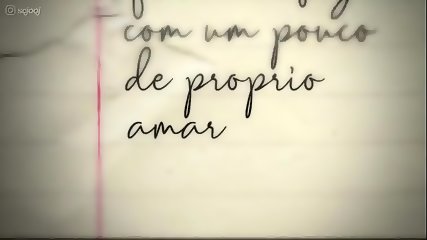 com um pouco
de proprio
amar